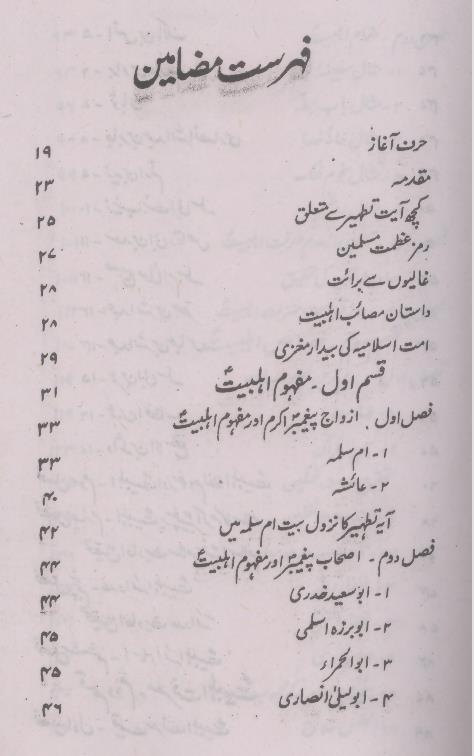 فہرست مضامین
حرف آغاز ۱۹
مقدمہ ۲۳
کچھ آیت تطہیر سے متعلق ۲۵
رمز عظمت مسلمین ۲۷
غالیوں سے برائت ۲۸
داستان مصائب اہلبیت ۲۸
امت اسلامیہ کی بیدار مغزی ۲۹
قسم اول ۔ مفہوم اہلبیتؑ ۳۱
فصل اول ۔ ازواج پیغمبرؐ اکرم اور مفہوم اہلبیتؑ ۳۳
۱ ۔ ام سلمہ ۳۳
۲ ۔ عائشہ ۴۰
آیہ تطہیر کا نزول بیت ام سلمہ میں ۴۲
فصل دوم ۔ اصحاب پیغمبرؐ اور مفہوم اہلبیتؑ ۴۴
۱ ۔ ابو سعید خدری ۴۴
۲ ۔ ابو برزہ اسلمی ۴۵
۳ ۔ ابو الحمراء ۴۵
۴ ۔ ابو لیلیٰ انصاری ۴۶